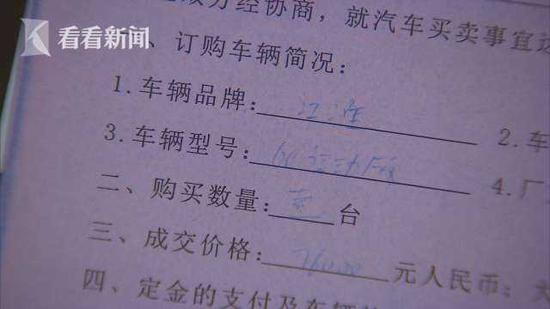 看看新闻
双方经协商，就汽车买卖事宜达
、订购车辆简况：
1.车辆品牌：江淮 2.车
3.车辆型号： 4.厂
二、购买数量：壹台
三、成交价格： 元人民币；大
四、定金的支付及车辆